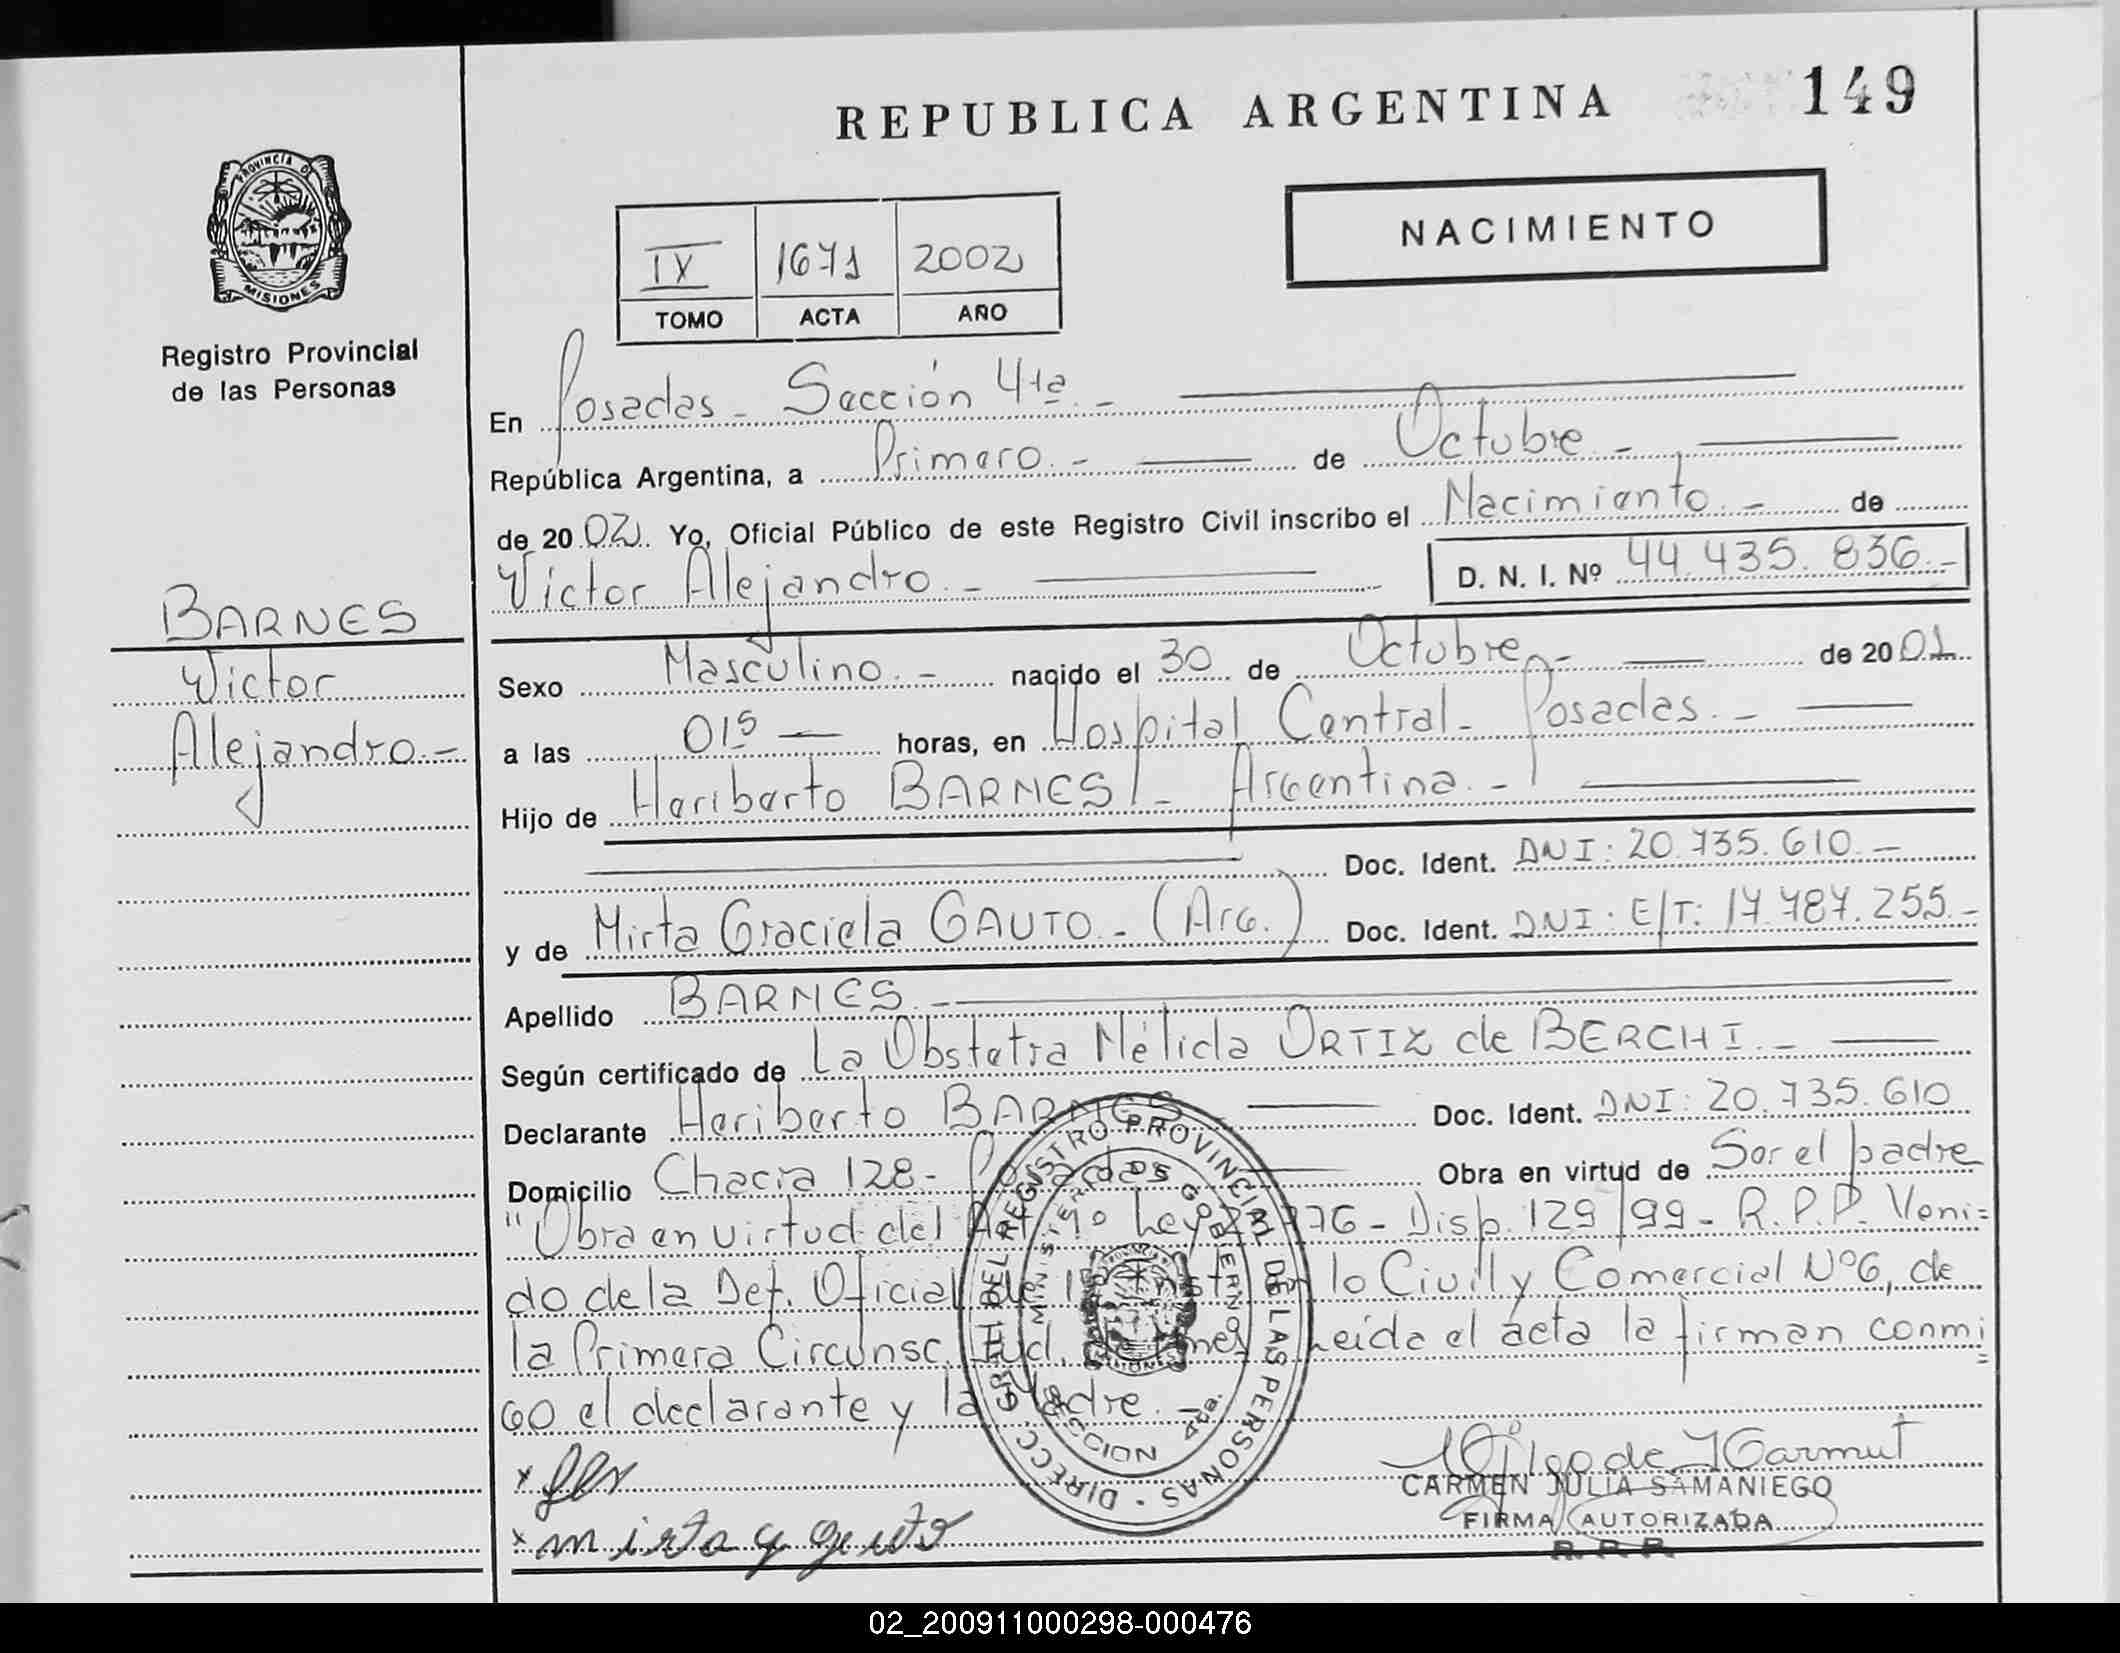 REPUBLICA ARGENTINA 149
PROVINCIA DE
MISIONES
Registro Provincial
de las Personas
NACIMIENTO
IX 1671 2002
TOMO ACTA AÑO
En Posadas - Sección 4ta. -
República Argentina, a Primero. - de Octubre -
de 2002. Yo, Oficial Público de este Registro Civil inscribo el Nacimiento. - de
Victor Alejandro. - D. N. I. Nº 44.435.836. -
BARNES
Victor
Alejandro. -
Sexo Masculino. - nacido el 30 de Octubre, - de 2001
a las 01 15 horas, en Hospital Central - Posadas. -
Hijo de Heriberto BARNES - Argentina. -
Doc. Ident. DNI: 20.735.610. -
y de Mirta Graciela GAUTO. - (Arg.) Doc. Ident. DNI: E/T: 17.787.255. -
Apellido BARNES. -
Según certificado de La Obstetra Nélida ORTIZ de BERCHI. -
Declarante Heriberto BARNES - Doc. Ident. DNI: 20.735.610
Domicilio Chacra 128 - Posadas Obra en virtud de Ser el padre
"Obra en virtud del Art. 1º Ley - Disp. 129/99 - R.P.P. Veni=
do de la Def. Oficial de 1ª Inst. lo Civil y Comercial Nº6, de
la Primera Circunsc. Jud. de Mnes. Leída el acta la firman conmi=
go el declarante y la Madre. -
DIRECC. GRAL DEL REGISTRO PROVINCIAL DE LAS PERSONAS
MINISTERIO DE GOBIERNO
SECCION 4ta.
x
x mirta g gauto
CARMEN JULIA SAMANIEGO
FIRMA AUTORIZADA
R. P. P.
02_200911000298-000476